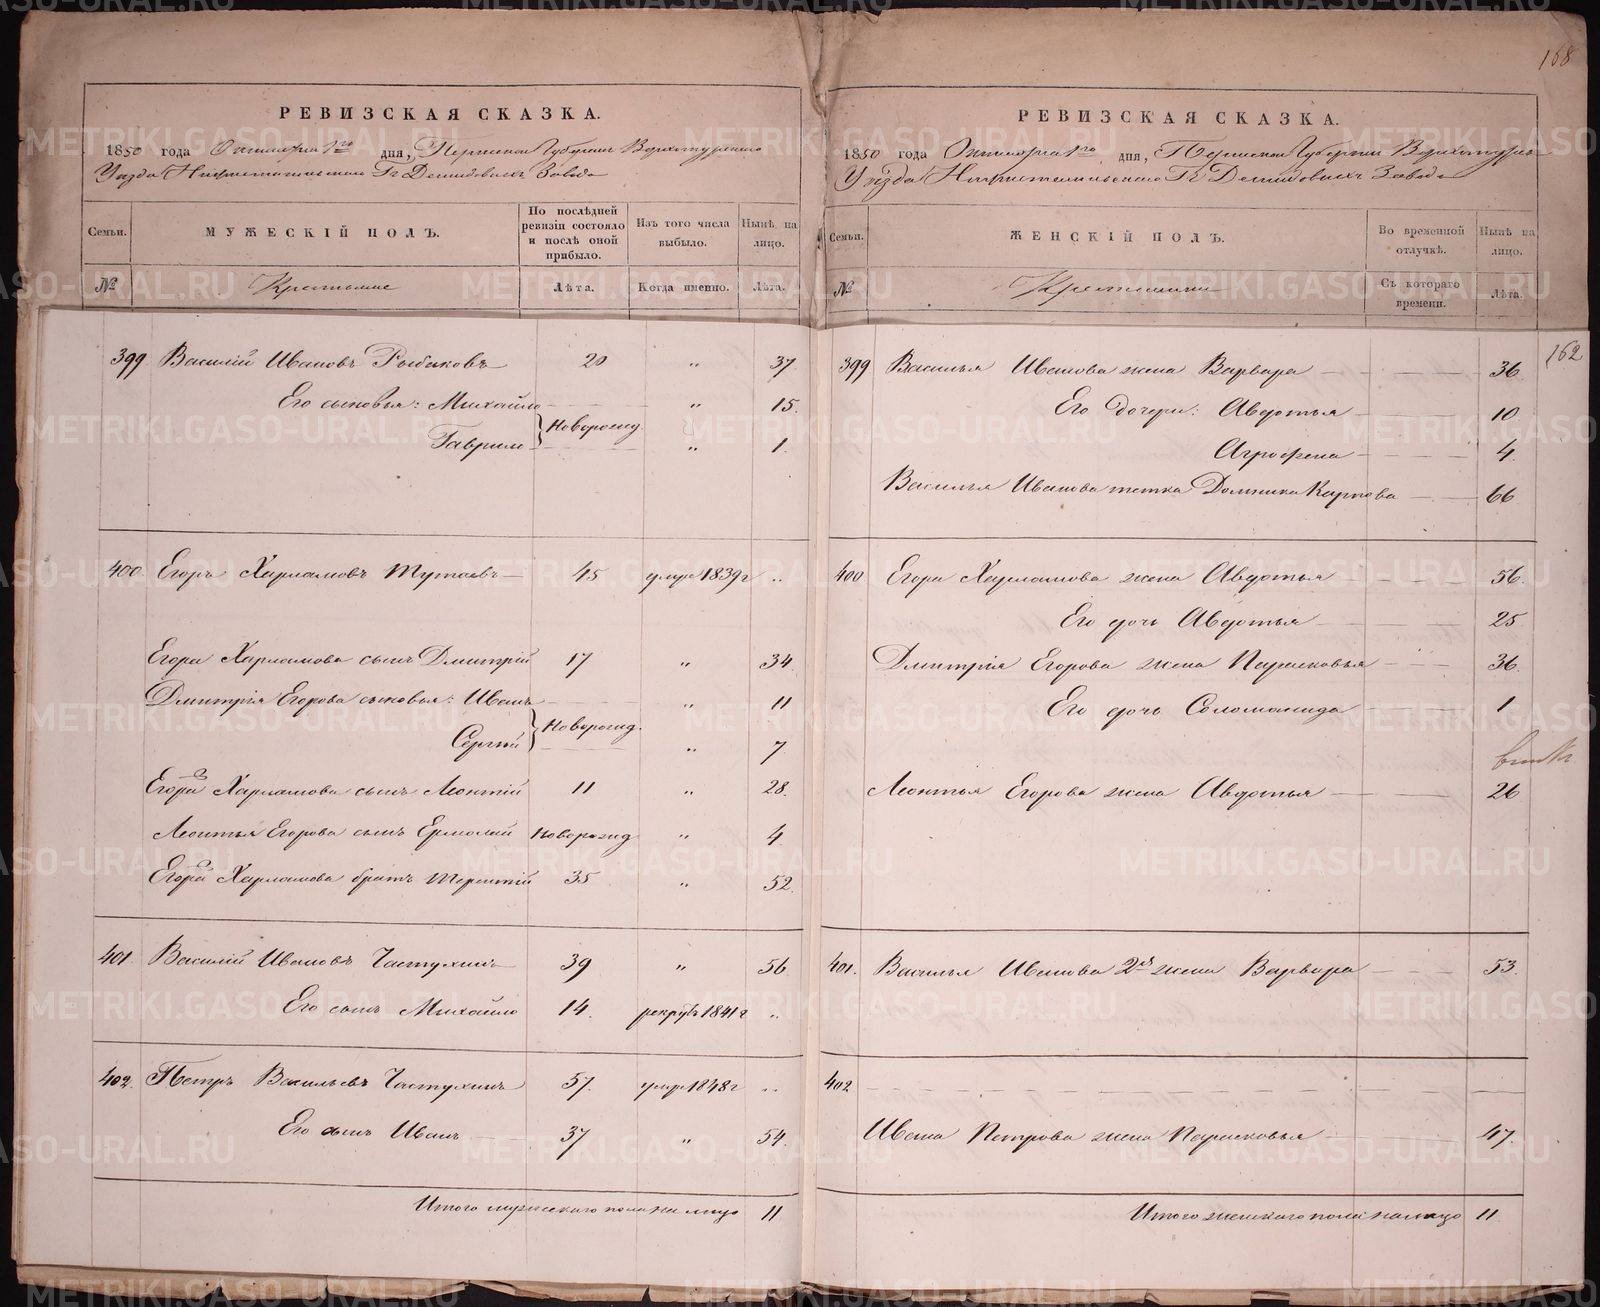 168
РЕВИЗСКАЯ СКАЗКА.
1850 года Октября 1го дня, Пермской Губернии Верхотурскаго
Уезда Нижнетагильскаго Гг Демидовыхъ Завода
Семьи.
МУЖЕСКІЙ ПОЛЪ.
По послѣдней ревизіи состояло и послѣ оной прибыло.
Изъ того числа выбыло.
Нынѣ на лицо.
№
Крестьяне
Лѣта.
Когда именно.
Лѣта.
399 Василій Ивановъ Рыбаковъ 20 " 37.
Его сыновья: Михайло " 15.
Новорожд.
Гаврило " 1.
400 Егоръ Харламовъ Тутаевъ 45 умре 1839 г ..
Егора Харламова сынъ Дмитрій 17 " 34.
Дмитрія Егорова сыновья: Иванъ " 11
Новорожд.
Сергей " 7
Егора Харламова сынъ Леонтій 11 " 28.
Леонтья Егорова сынъ Ермолай Новорожд " 4
Егора Харламова братъ Терентій 35 " 52.
401. Василій Ивановъ Частухинъ 39 " 56
Его сынъ Михайло 14. рекрутъ 1841 г ..
402. Петръ Васильевъ Частухинъ 57. умре 1848 г ..
Его сынъ Иванъ 37 " 54.
Итого мужескаго пола на лицо 11
РЕВИЗСКАЯ СКАЗКА.
1850 года Октября 1го дня, Пермской Губерніи Верхотурск
Уѣзда Нижнетагильскаго Гг Демидовыхъ Завода
Семьи.
ЖЕНСКІЙ ПОЛЪ.
Во временной отлучкѣ.
Нынѣ на лицо.
№
Крестьянки
Съ котораго времени.
Лѣта.
162
399 Василья Иванова жена Варвара 36
Его дочери: Авдотья 10
Агрофена 4.
Василья Иванова тетка Домника Карпова 66
400 Егора Харламова жена Авдотья 56.
Его дочь Авдотья 25
Дмитрія Егорова жена Парасковья 36.
Его дочь Соломонида 1
Леонтья Егорова жена Авдотья 26
401. Василья Иванова 2я жена Варвара 53.
402
Ивана Петрова жена Парасковья 47.
Итого женскаго пола на лицо 11
METRIKI.GASO-URAL.RU